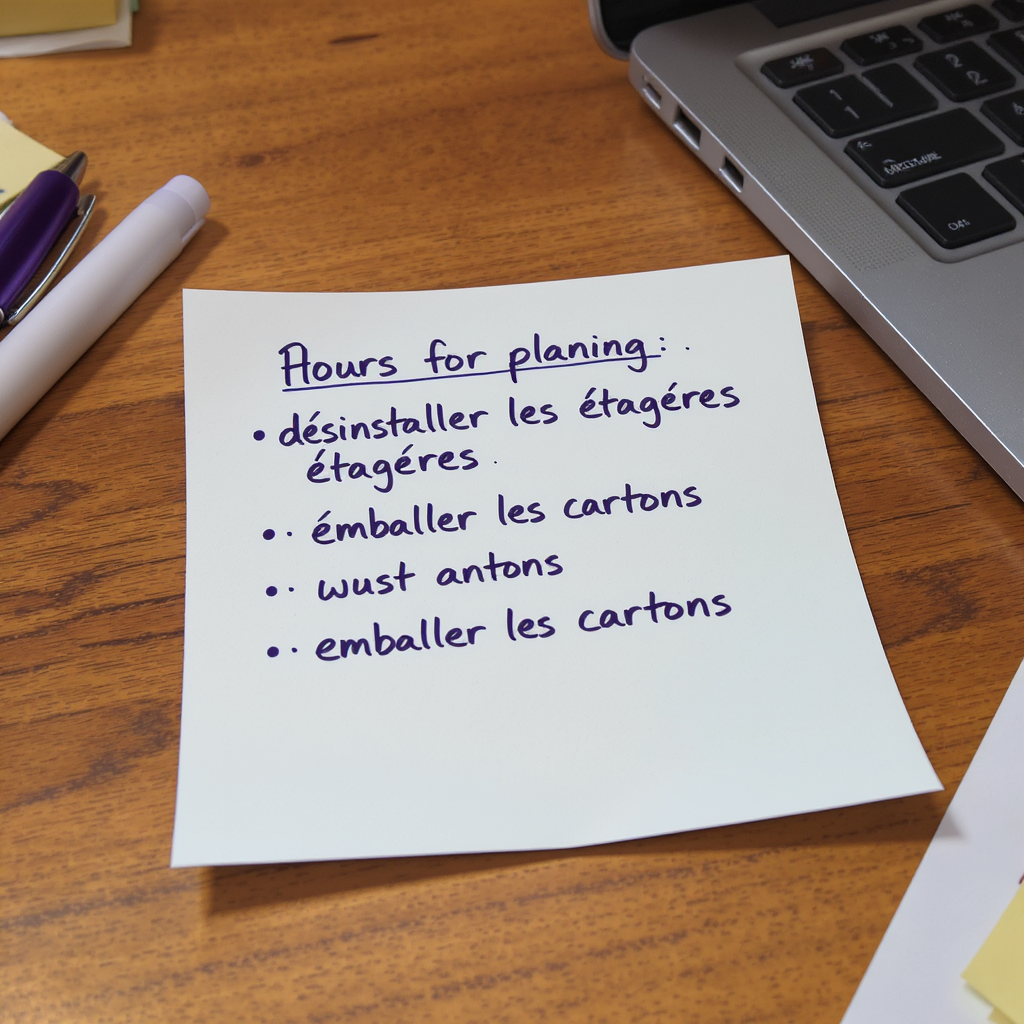 Hours for planing: .
• désinstaller les étagéres
étagéres .
• · émballer les cartons
• · wust antons
• · emballer les cartons